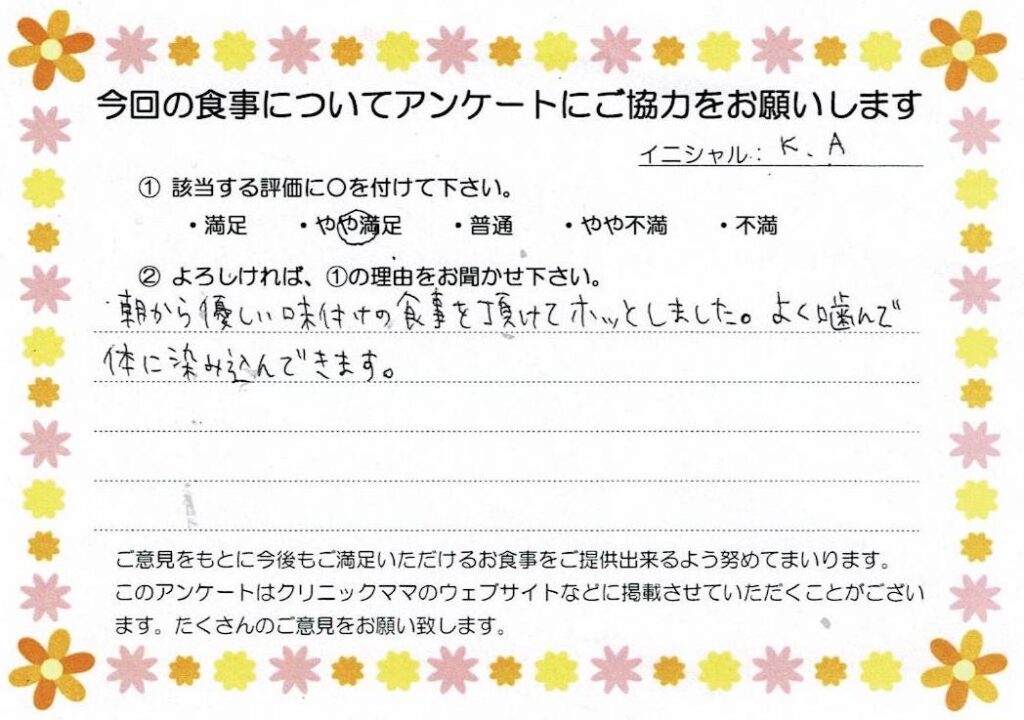 今回の食事についてアンケートにご協力をお願いします
イニシャル： K. A
① 該当する評価に○を付けて下さい。
・満足 ・やや満足 ・普通 ・やや不満 ・不満
② よろしければ、①の理由をお聞かせ下さい。
朝から優しい味付けの食事を頂けてホッとしました。よく噛んで
体に染み込んできます。
ご意見をもとに今後もご満足いただけるお食事をご提供出来るよう努めてまいります。
このアンケートはクリニックママのウェブサイトなどに掲載させていただくことがござい
ます。たくさんのご意見をお願い致します。